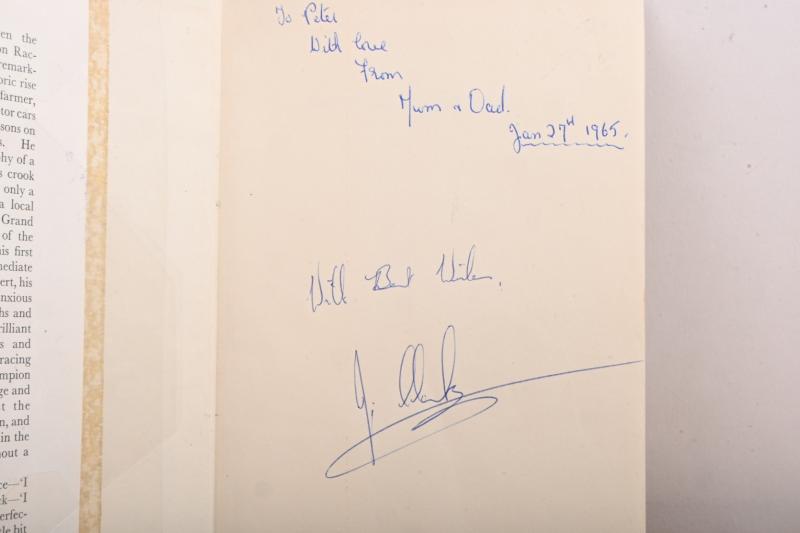 en the
on Rac-
remark-
oric rise
farmer,
tor cars
sons on
s. He
hy of a
s crook
only a
a local
Grand
of the
is first
mediate
ert, his
nxious
hs and
rilliant
s and
racing
mpion
ge and
t the
n, and
in the
out a
ce—'I
k—'I
erfec-
tle bit
To Peter
With love
From
Mum & Dad.
Jan 27th 1965.
With Best Wishes,
J. Clark